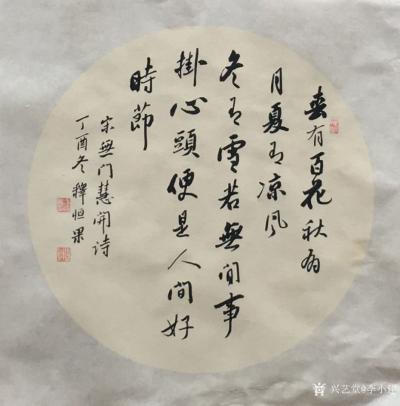 春有百花秋有
月夏有凉风
冬有雪若無间事
掛心頭便是人间好
時節
宋無门慧开诗
丁酉冬釋恒果
兴艺堂@李小